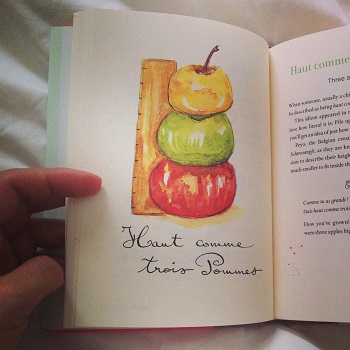 Haut comme
trois Pommes
Haut comme
Three a
When someone, usually a ch
be described as being haut co
This idiom appeared in t
love how literal it is: Pile up
you'll get an idea of just how
Peyo, the Belgian creat
Schtroumpfs, as they are know
tion to describe their heigh
much smaller to fit inside th
Comme tu as grandi !
étais haut comme trois
How you've grown!
were three apples hig